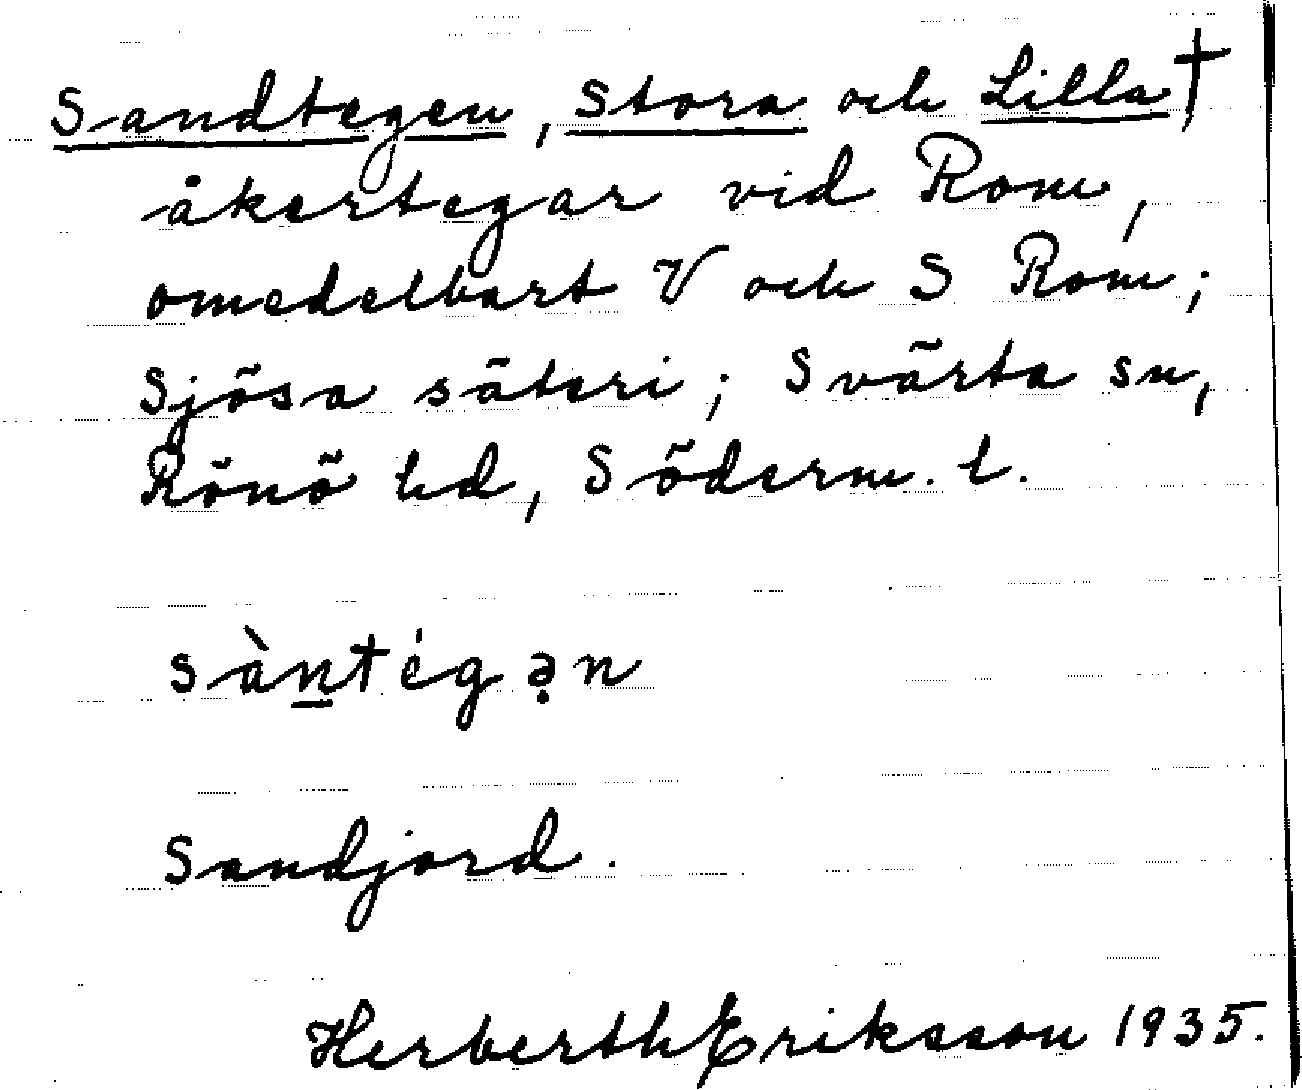 Sandtegen, Stora och Lilla †
åkertegar vid Rom,
omedelbart V och S Rom;
Sjösa säteri; Svärta sn,
Rönö hd, Söderm. l.
sàn̠tégə̣n
Sandjord.
Herberth Eriksson 1935.